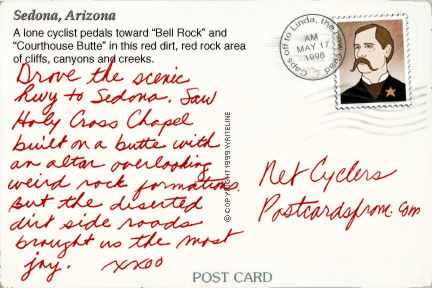 Sedona, Arizona
A lone cyclist pedals toward “Bell Rock” and
“Courthouse Butte” in this red dirt, red rock area
of cliffs, canyons and creeks.
Drove the scenic
hwy to Sedona. Saw
Holy Cross Chapel
built on a butte with
an altar overlooking
weird rock formations.
But the diserted
dirt side roads
brought us the most
joy. xxoo
© COPYRIGHT 1999 WRITELINE
Caps off to Linda, the
AM
MAY 17
1998
Net Cyclers
Postcardsfrom.com
POST CARD